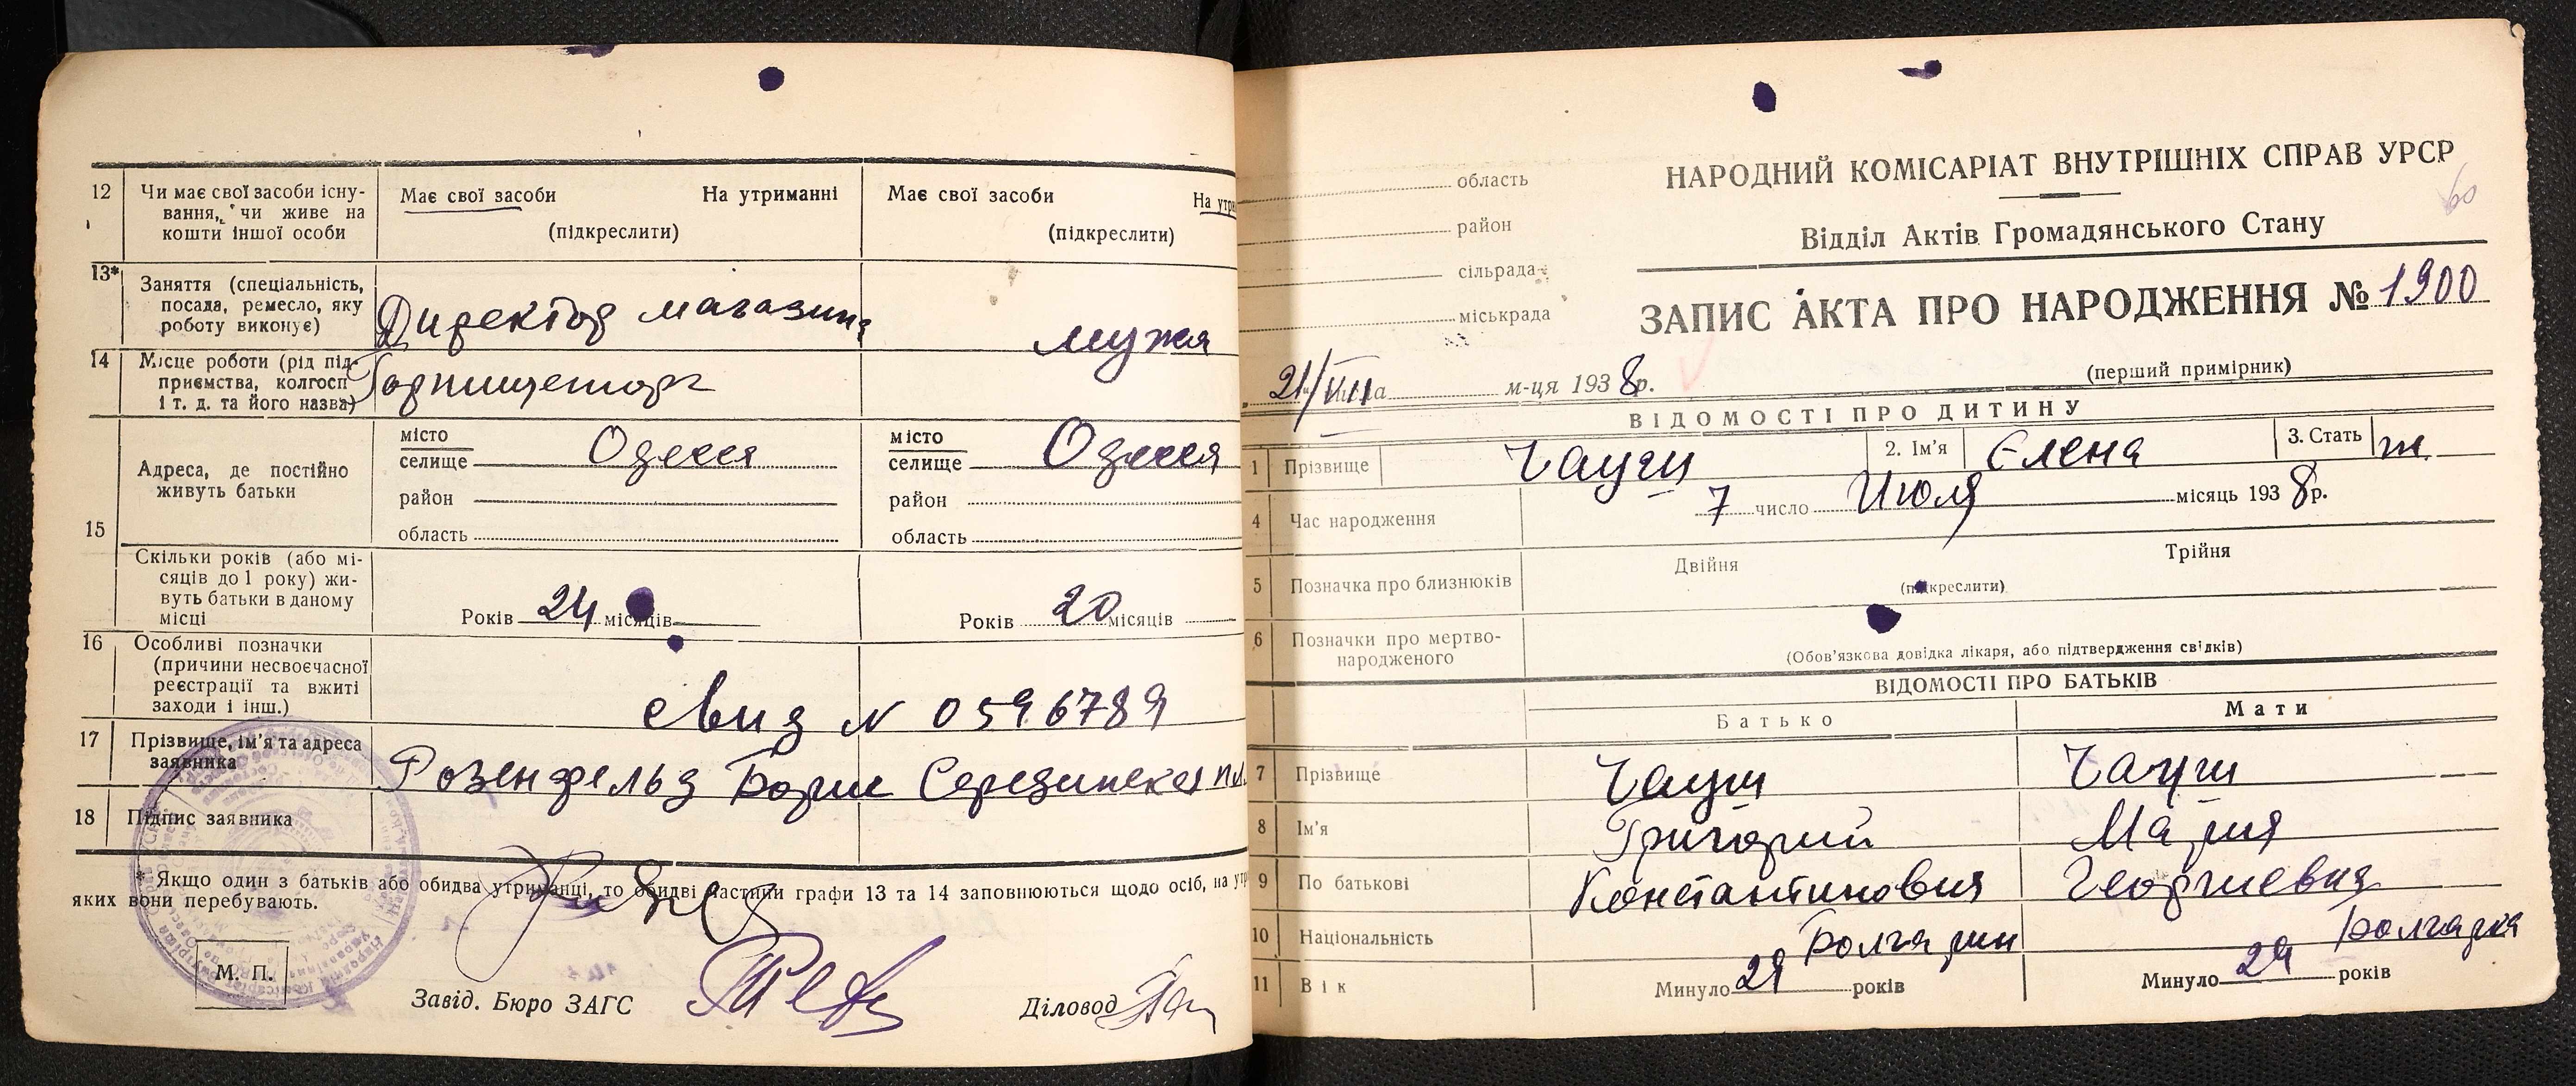 12 Чи має свої засоби існу-
вання, чи живе на
кошти іншої особи
Має свої засоби На утриманні
(підкреслити)
Має свої засоби На утри
(підкреслити)
13* Заняття (спеціальність,
посада, ремесло, яку
роботу виконує)
Директор магазина
мужа
14 Місце роботи (рід під-
приємства, колгосп
і т. д. та його назва)
Горпищеторг
15 Адреса, де постійно
живуть батьки
місто
селище Одесса
район
область
місто
селище Одесса
район
область
Скільки років (або мі-
сяців до 1 року) жи-
вуть батьки в даному
місці
Років 24 місяців
Років 20 місяців
16 Особливі позначки
(причини несвоєчасної
реєстрації та вжиті
заходи і інш.)
Свид N 0596789
17 Прізвище, ім'я та адреса
заявника
Розенфельд Борис Серединская пл.
18 Підпис заявника
* Якщо один з батьків або обидва утриманці, то обидві частини графи 13 та 14 заповнюються щодо осіб, на утр
яких вони перебувають.
М. П.
Завід. Бюро ЗАГС
Діловод
область
район
сільрада
міськрада
НАРОДНИЙ КОМІСАРІАТ ВНУТРІШНІХ СПРАВ УРСР
60
Відділ Актів Громадянського Стану
ЗАПИС АКТА ПРО НАРОДЖЕННЯ № 1900
(перший примірник)
21/VIII м-ця 1938 р.
ВІДОМОСТІ ПРО ДИТИНУ
1 Прізвище Чауш 2. Ім'я Єлена 3. Стать ж.
4 Час народження 7 число Июля місяць 1938 р.
5 Позначка про близнюків Двійня Трійня
(підкреслити)
6 Позначки про мертво-
народженого
(Обов'язкова довідка лікаря, або підтвердження свідків)
ВІДОМОСТІ ПРО БАТЬКІВ
Батько Мати
7 Прізвище Чауш Чауш
8 Ім'я Григорий Мария
9 По батькові Константинович Георгиевна
10 Національність Болгарин Болгарка
11 Вік Минуло 29 років Минуло 29 років